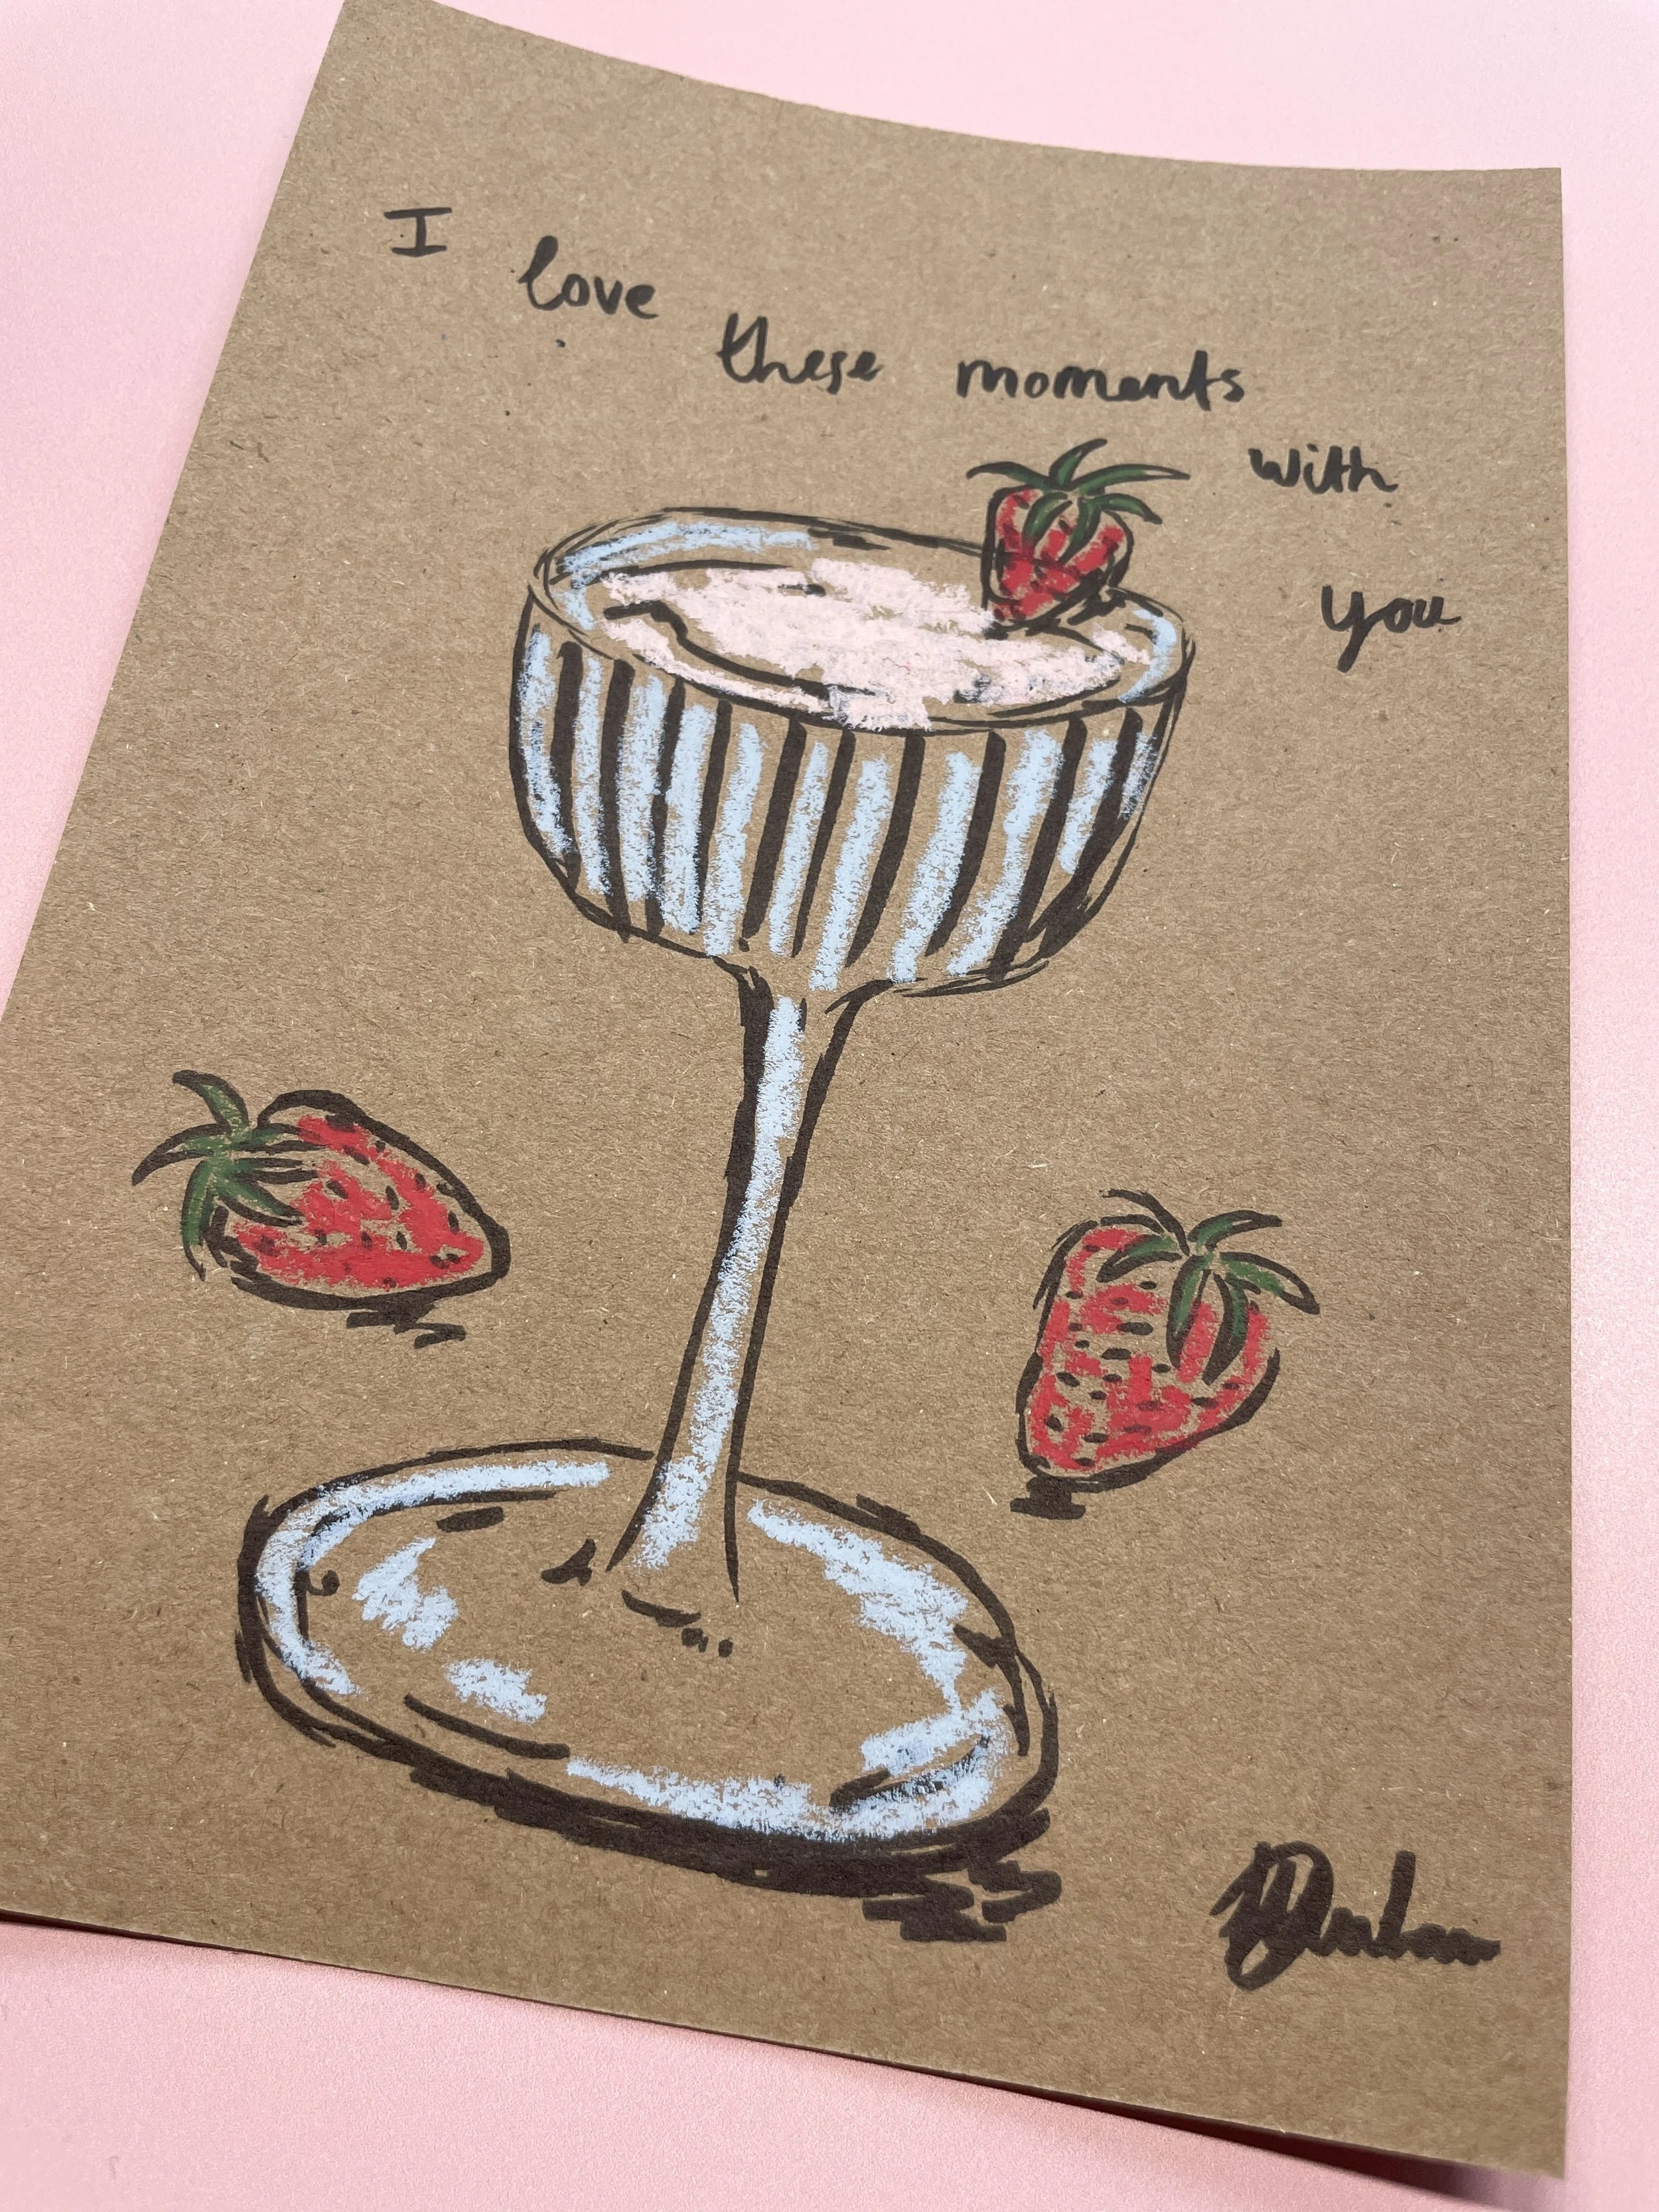 I love these moments with you